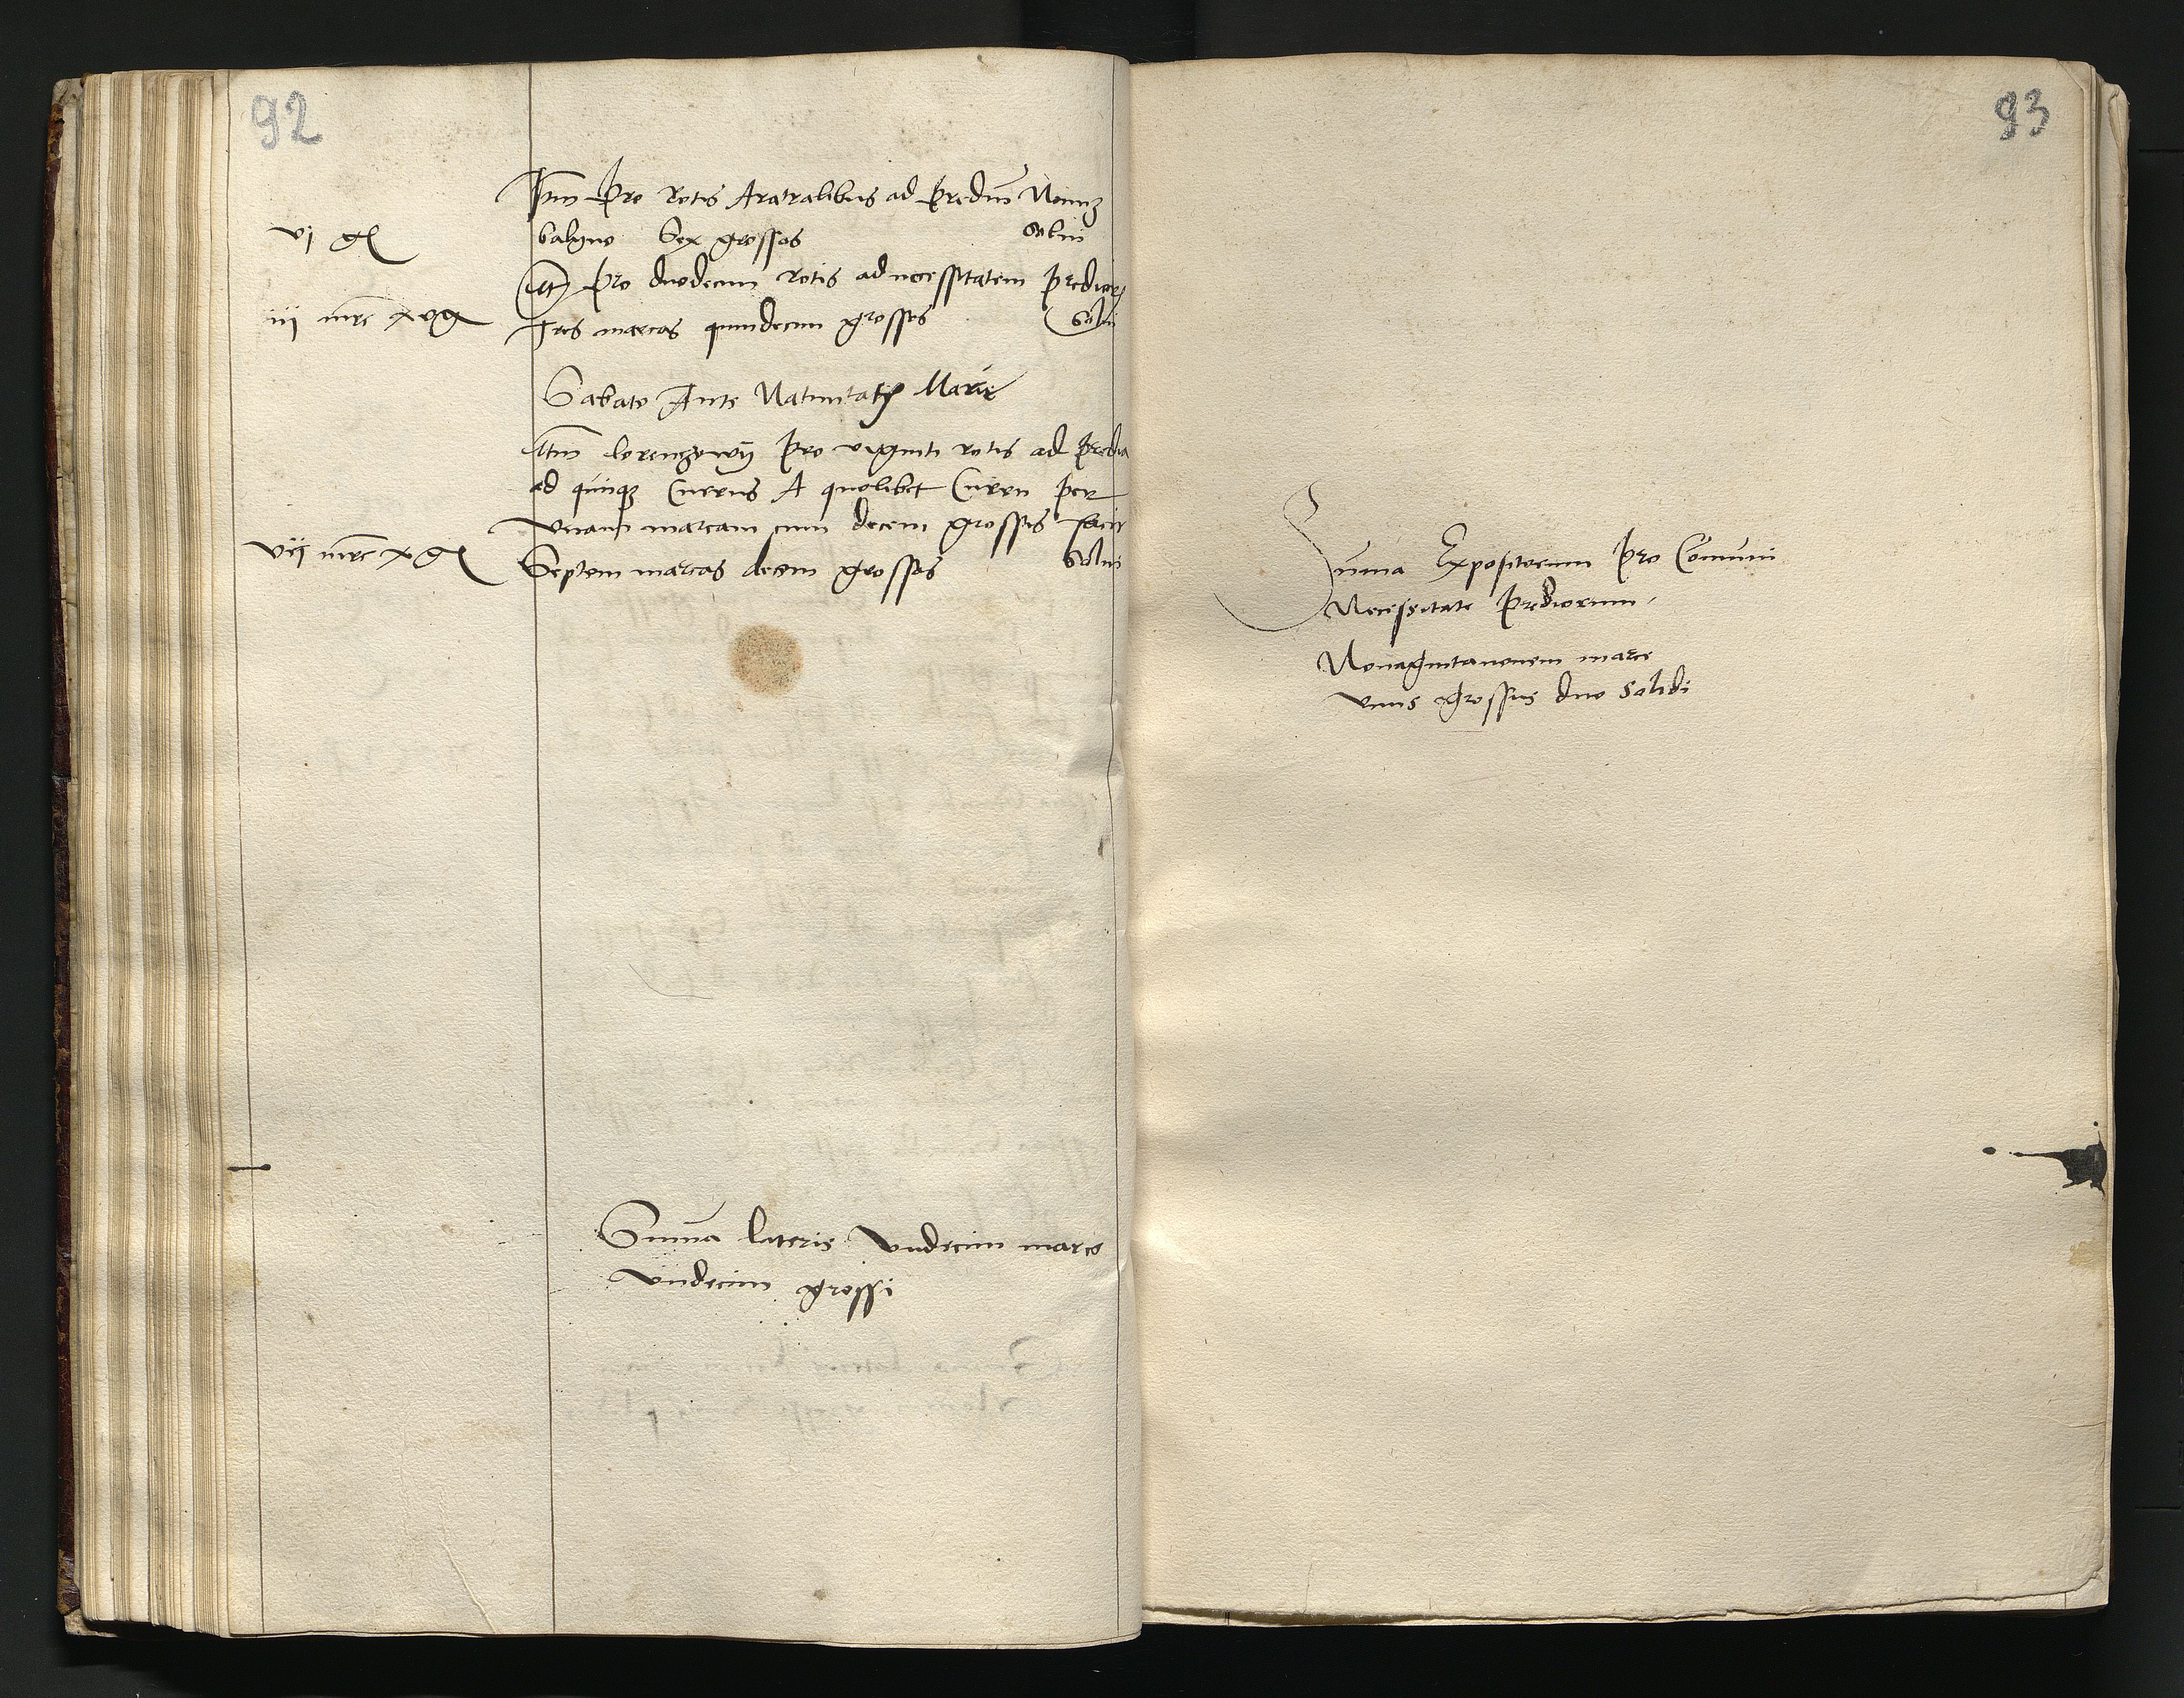 92
Itm̄ pro Rotis Aratralibus ad prediū Nema
vj gͬ
balyno Sex grossos Solui
Itē pro duodecim rotis ad necessitatem predior
iij mrc xv gͬ
Tres marcas quindecim grossos Solui
Sabato Ante Natiuitatē Marie
Itm̄ lorenczowij pro viginti rotis ad predia
ad quinqꝫ Currus A quolibet Curru per
vnam marcam cum decem grossis facit
vii mrc x gͬ
Septem marcas decem grossos Solui
Sum̄a lateris vndecim marce
vndecim grossi
93
Sum̄a Expositorum pro Com̄uni
Necessitate prediorum
Nonagintanouem marce
vnus grossus duo solidi